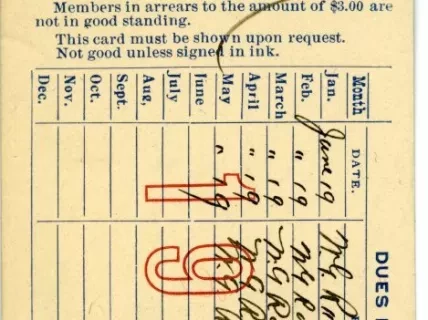 Members in arrears to the amount of $3.00 are
not in good standing.
This card must be shown upon request.
Not good unless signed in ink.
Month
DATE.
DUES
Jan.
June 19
Feb.
" 19
March
" 19
April
" 19
May
" 19
June
July
Aug.
Sept.
Oct.
Nov.
Dec.
19